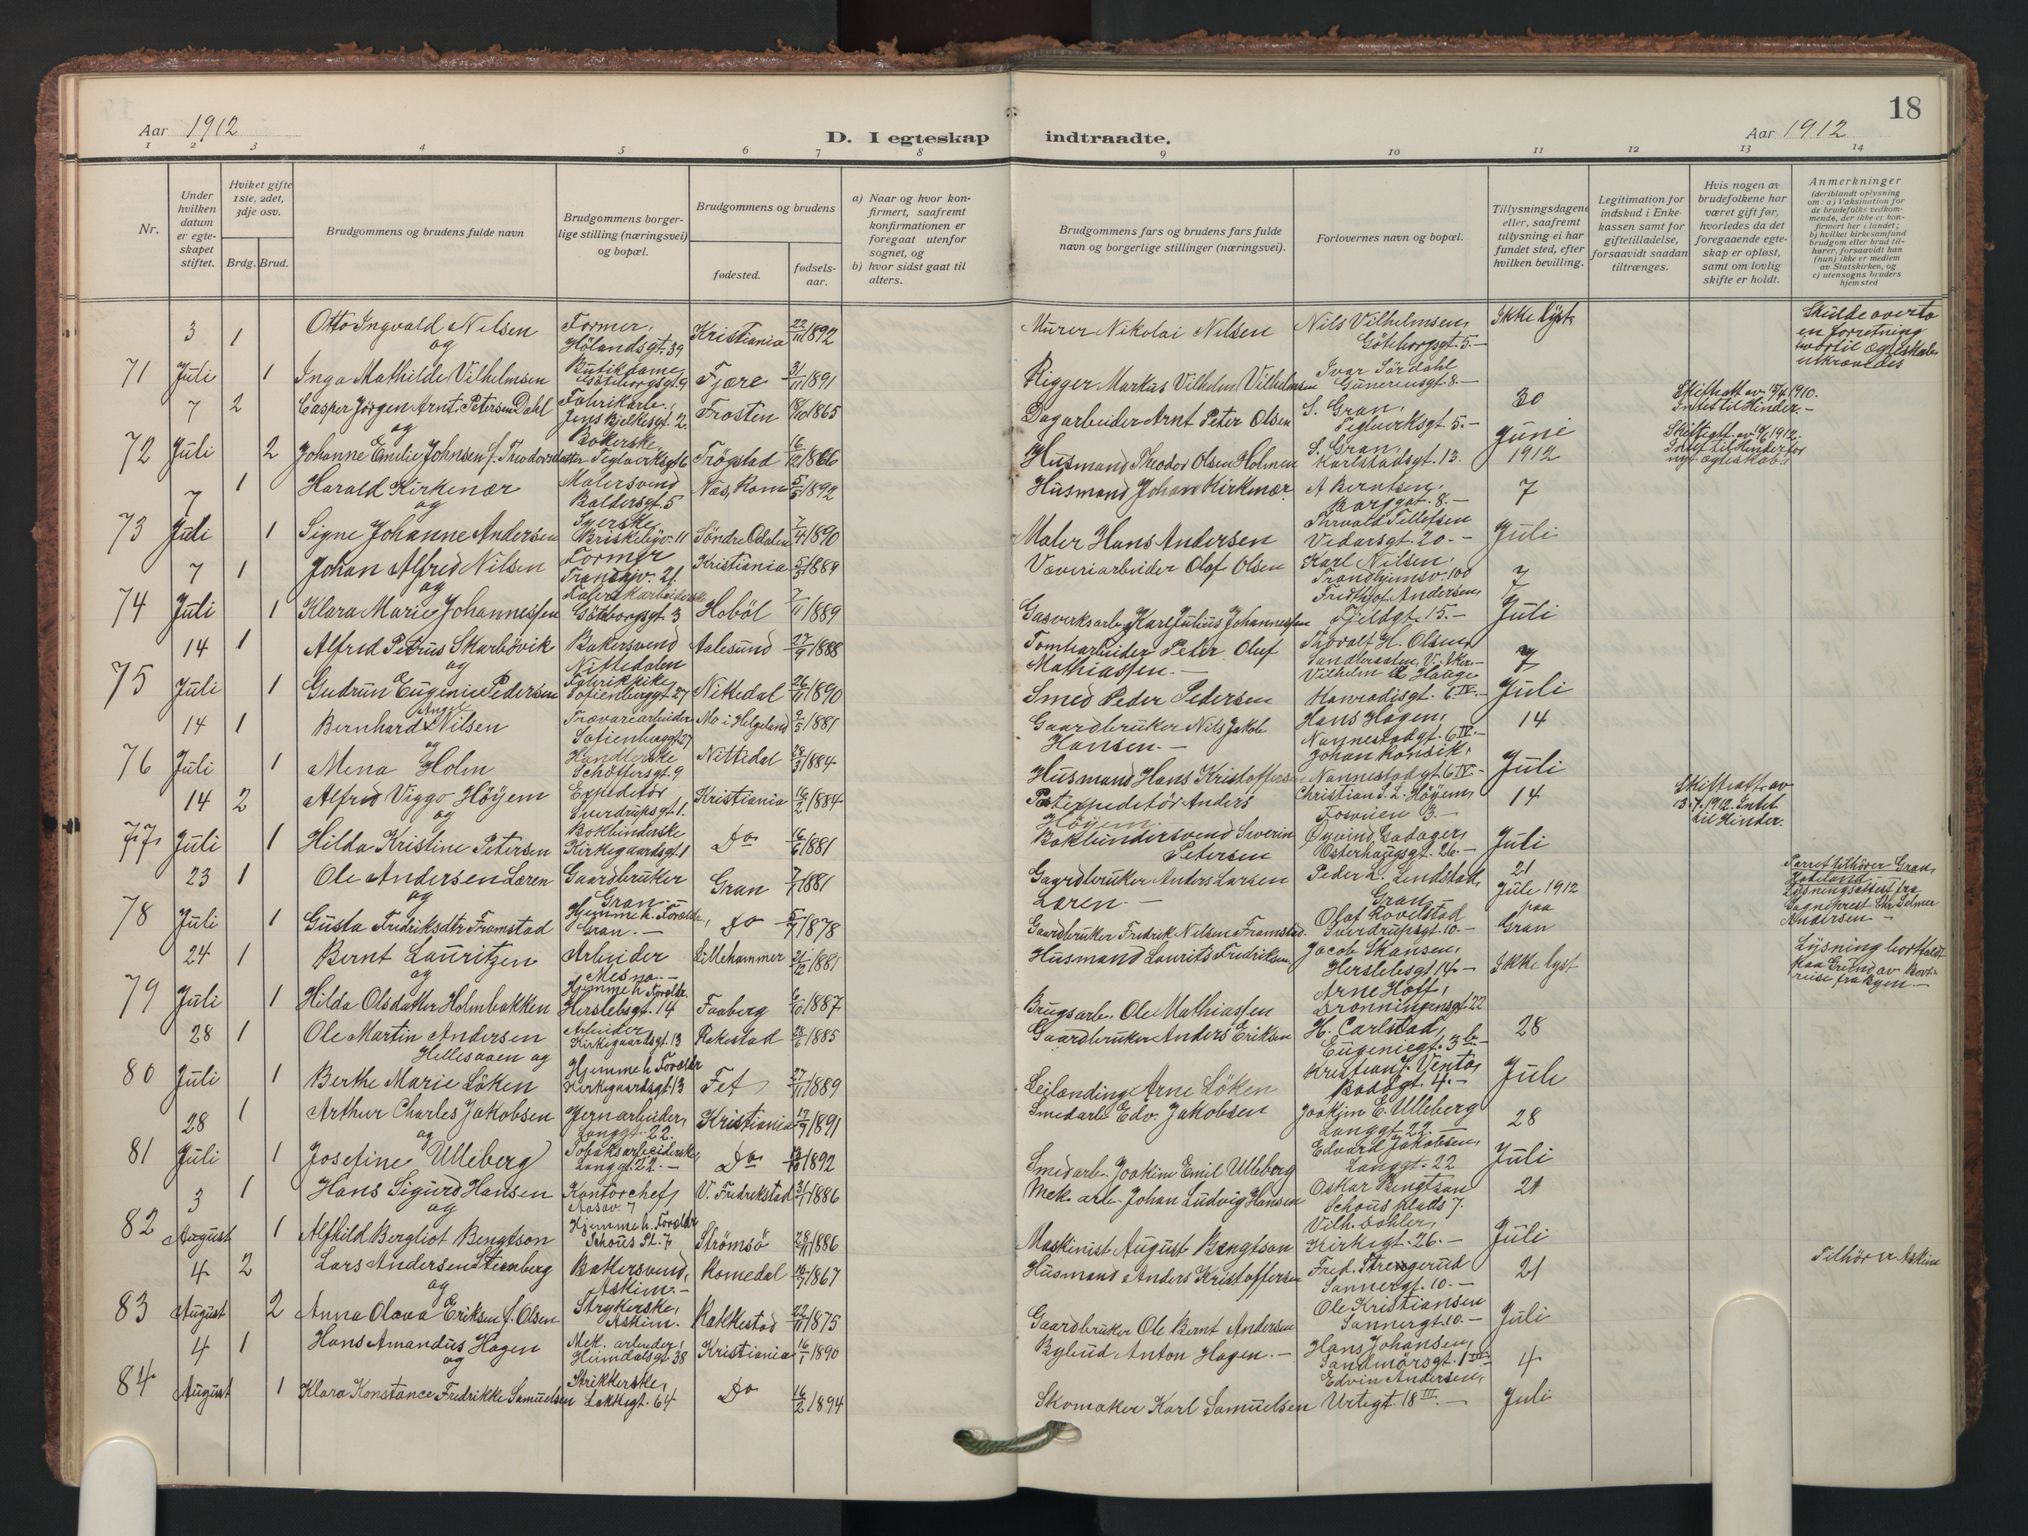 18
Aar 1912
D. I egteskap indtraadte.
Aar 1912
1 2 3 4 5 6 7 8 9 10 11 12 13 14
Nr.
Under hvilken datum er egteskapet stiftet.
Hviket gifte 1ste, 2det, 3dje osv.
Brdg. Brud.
Brudgommens og brudens fulde navn
Brudgommens borgerlige stilling (næringsvei) og bopæl.
Brudgommens og brudens
fødested. fødselsaar.
a) Naar og hvor konfirmert, saafremt konfirmationen er foregaat utenfor sognet, og
b) hvor sidst gaat til alters.
Brudgommens fars og brudens fars fulde navn og borgerlige stillinger (næringsvei).
Forlovernes navn og bopæl.
Tillysningsdagene eller, saafremt tillysning ei har fundet sted, efter hvilken bevilling.
Legitimation for indskud i Enkekassen samt for giftetilladelse, forsaavidt saadan tiltrænges.
Hvis nogen av brudefolkene har været gift før, hvorledes da det foregaaende egteskap er opløst, samt om lovlig skifte er holdt.
Anmerkninger
(deriblandt oplysning om: a) Vaksination for de brudefolks vedkommende, der ikke er konfirmert her i landet; b) hvilket kirkesamfund brudgom eller brud tilhører, forsaavidt han (hun) ikke er medlem av Statskirken, og c) utensogns bruders hjemsted
3 1 Otto Ingvald Nilsen Former, Hölandsgt. 39 Kristiania 22/10 1892 Murer Nikolai Nilsen Nils Vilhelmsen, Göteborgsgt. 5.- Ikke lyst Skulde overta en forretning hvortil egteskab utkrævdes
og
71 Juli 1 Inga Mathilde Vilhelmsen Butikdame Göteborgsgt. 9 Fjære 31/11 1891 Rigger Markus Vilhelm Vilhelmsen Ivar Sördahl Guneriusgt. 8.-
7 2 Casper Jörgen Arnt Petersen Dahl Fabrikarb., Jens Bjelkesgt. 2. Frosten 18/10 1865 Dagarbeider Arnt Peter Olsen S. Gran, Teglverksgt 5.- 30 Skifteatt av 13/4 1910. Intet til Hinder.-
og
72 Juli 2 Johanne Emilie Johnsen f. Theodorsdatter Teglverksgt 6 Trögstad 16/12 1866 Husmand Theodor Olsen Holmen S. Gran, Karlstadsgt. 13. June 1912 Skifteatt. av 1912. Intet til Hinder for nyt egteskab.
7 1 Harald Kirkenær Malersvend Baldersgt. 5 Näs, Rom 5/5 1892 Husmand Johan Kirknær A Berntsen, Borggt. 8.- 7
og
73 Juli 1 Signe Johanne Andersen Syerske, Briskebyv. 11 Söndre Odalen 7/4 1890 Maler Hans Andersen Thrvald Tellefsen Vidarsgt. 20.- Juli
7 1 Johan Alfred Nilsen Former Trondhjv. 21. Kristiania 5/3 1889 Væveriarbeider Olaf Olsen Karl Nilsen, Trondhjemsv. 100 7
og
74 Juli 1 Klara Marie Johannessen Fabrikarbeiderske Götborgsgt. 3 Hoböl 7/11 1889 Gasverksarb. Karl Julius Johannessen Fridthjof Andersen, Fjeldgt. 15.- Juli
14 1 Alfred Petrus Skarbövik Bakersvend Nittedalen Aalesund 27/9 1888 Tomtearbeider Peter Oluf Mathiassen.- Thoralf H. Olsen, V. Aker.- 7
og
75 Juli 1 Gudrun Eugenie Pedersen Fabrikpike, Sofienberggt 27 Nittedal 26/11 1890 Smed Peder Pedersen Vilhelm E Hauge 6 IV.- Juli
14 1 Bernhard Angel Nilsen Trævarearbeider Sofienberggt 27 Mo i Helgeland 9/5 1881 Gaardbruker Nils Jakob Hansen.- Hans Hagen, Nannestadgt. 6 IV.- 14
og
76 Juli 1 Mena Holm Handlerske Schöffersgt. 9 Nittedal 28/3 1884 Husmand Hans Kristoffersen Johan Ronsik, Nannestadgt 6 IV.- Juli
14 2 Alfred Viggo Höyem Expeditör Sverdrupsgt. 1. Kristiania 16/2 1884 Postexpeditör Anders Höyem Christian S. L. Höyem, Fosveien 3.- 14 Skifteatt. av 3.7.1912. Intet til Hinder.
og
77 Juli 1 Hilda Kristine Petersen Bokbinderske Kirkegaardsgt. 1 Do 16/6 1881 Bokbindersvend Swerin Petersen Öyvind Osterhaugsgt. 26.- Juli
23 1 Ole Andersen Læren Gaardbruker Gran.- Gran 7/7 1881 Gaardbruker Anders Larsen Læren.- Peder L. Lindstad, Gran.- 21 Juli 1912 paa Gran Parret tilhörer Gran, Hadeland. Lysningsattest fra Sogneprest Chr Selmer Andersen.-
og
78 Juli 1 Gusta Fredriksdtr Framstad Hjemme h. Foreldre, Gran.- Do 5/7 1878 Gaardbruker Fredrik Nilsen Framstad Olaf Rovelstad Sverdrupsgt. 10.-
24 1 Bernt Lauritzen Arbeider Mesna.- Lillehammer 21/12 1881 Husmand Laurits Fredriksen Jacob Skansen, Herslebsgt 14.- Ikke lyst Lysning bortfaldt paa Grund av Bortreise fra byen.-
og
79 Juli 1 Hilda Olsdatter Holmbakken Hjemme h Foreldr. Herslebsgt. 14 Faaberg 6/10 1887 Brugsarb. Ole Mathiassen Arne Hoff, Dronningensgt. 22
28 1 Ole Martin Andersen Hellesaaen og Arbeider Kirkegaardsgt. 13 Rakestad 28/6 1885 Gaardbruker Anders Eriksen H. Carlstad, Eugeniegt. 3 b.- 28
80 Juli 1 Berthe Marie Löken Hjemme h Foreldr Kirkegaardsgt. 13 Fet 27/11 1889 Leilænding Arne Löken Kristian J. Ventos Bodögt. 4.- Juli
28 1 Arthur Charles Jakobsen Jernarbeider, Langgt. 22. Kristiania 17/7 1891 Smedarb Edv. Jakobsen Joakim E. Ulleberg Langgt 22.- 28
og
81 Juli 1 Josefine Ulleberg Tobaksarbeiderske, Langgt. 22.- Do 1892 Smedarb. Joakim Emil Ulleberg Edvard Jakobsen, Langgt. 22 Juli
3 1 Hans Sigurd Hansen Kontorchef, Aasov. 7 V. Fredrikstad 31/1 1886 Mek. arb. Johan Ludvig Hansen Oskar Bengtson Schous plads 7. 21
og
82 August 1 Alfhild Bergliot Bengtson Hjemme h. Foreldr Schous Pl. 7. Strömsö 28/11 1886 Maskinist August Bengtson Vilh. Dohler, Kirkegt. 26.- Juli
4 2 Lars Andersen Stenberg Bakersvend, Askim.- Romedal 16/7 1867 Husmand Anders Kristoffersen Fred. Strengerud Sannergt. 10.- 21 Tilhörer Askim
og
83 August 2 Anna Olava Eriksen f. Olsen Strykerske, Askim. Rakkestad 22/11 1875 Gaardbruker Ole Bernt Andersen Ole Kristiansen Sannergt. 10.- Juli
4 1 Hans Amandus Hagen Mek. arbeider, Heimdalsgt. 38 Kristiania 16/1 1890 Bybud Anton Hagen.- Hans Johansen, Sandmörsgt. 1 III.- 4
og
84 August 1 Klara Konstance Fredrikke Samuelsen Strikkerske, Lakkegt. 64 Do 16/2 1894 Skomaker Karl Samuelsen Edvin Andersen, Urtegt. 18 III.- Juli